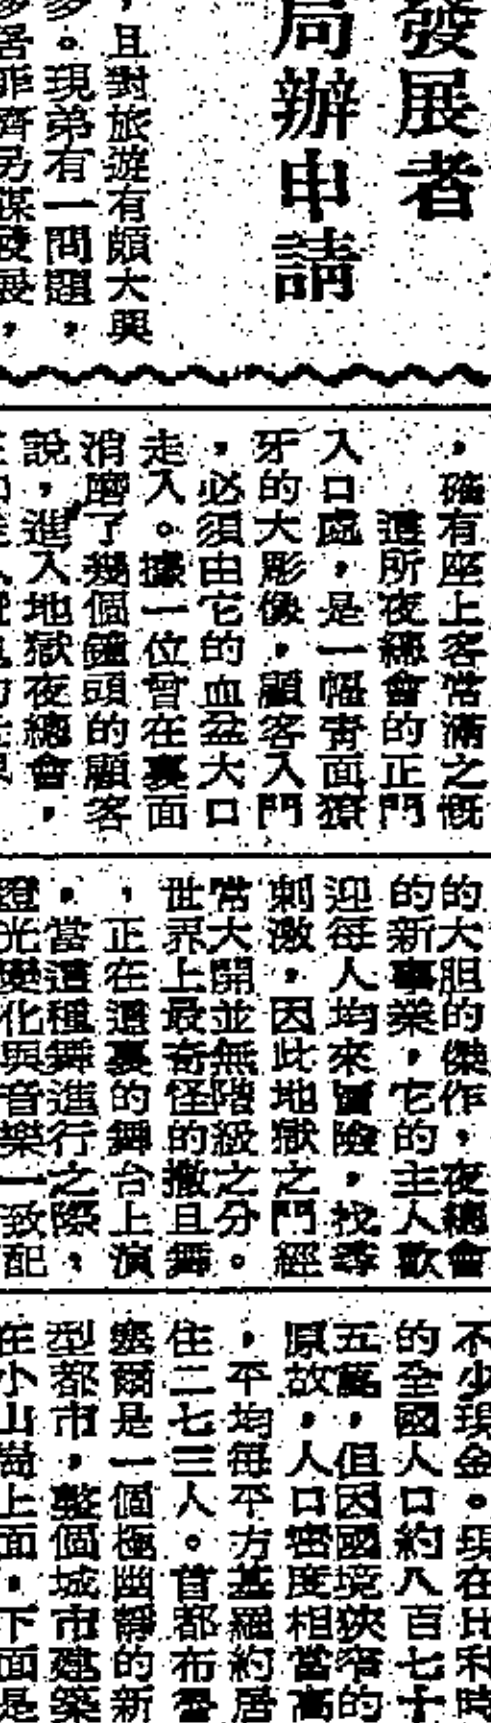 發展者
局辦申請
，且對旅遊有頗大興
多。現弟有一問題，
，確有座上客常滿之慨
這所夜總會的正門
入口處，是一幅青面獠
牙的大彫像，顧客入門
，必須由它的血盆大口
走入。據一位曾在裏面
消磨了幾個鐘頭的顧客
說，進入地獄夜總會，
的大胆的傑作，夜總會
的新事業，它的主人歡
迎每人均來冒險，找尋
刺激，因此地獄之門經
常大開並無階級之分。
世界上最奇怪的撒旦舞
，正在這裏的舞台上演
，當這種舞進行之際，
燈光變化與音樂一致配
不少現金。現在比利時
的全國人口約八百七十
五萬，但因國境狹窄的
原故，人口密度相當高
，平均每平方基羅約居
住二七三人。首都布魯
塞爾是一個極幽靜的新
型都市，整個城市建築
在小山崗上面，下面是